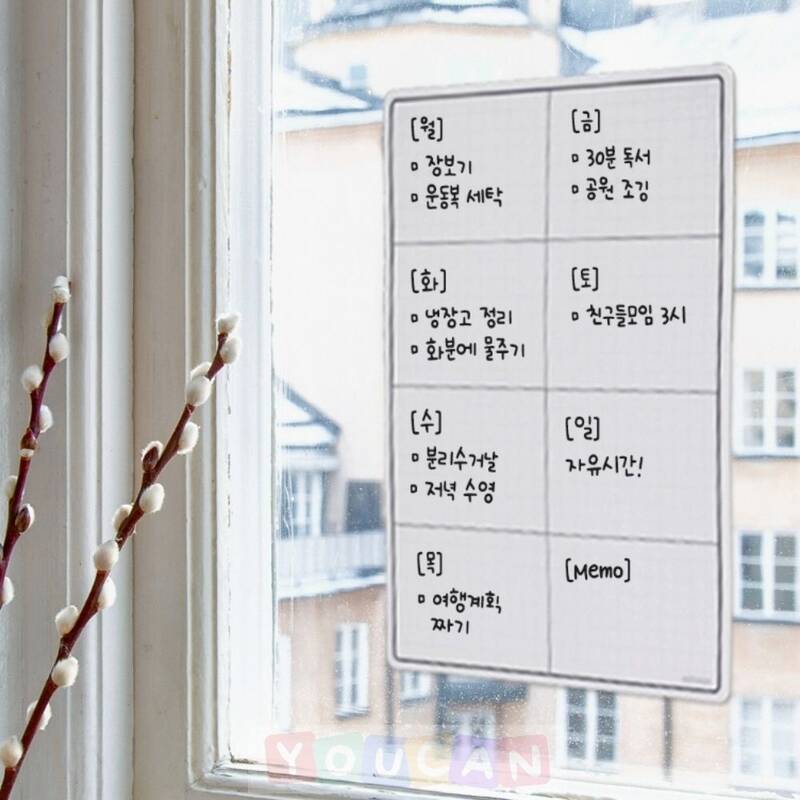 [월]
장보기
운동복 세탁
[화]
냉장고 정리
화분에 물주기
[수]
분리수거날
저녁 수영
[목]
여행계획
짜기
[금]
30분 독서
공원 조깅
[토]
친구들모임 3시
[일]
자유시간!
[Memo]
YOUCAN